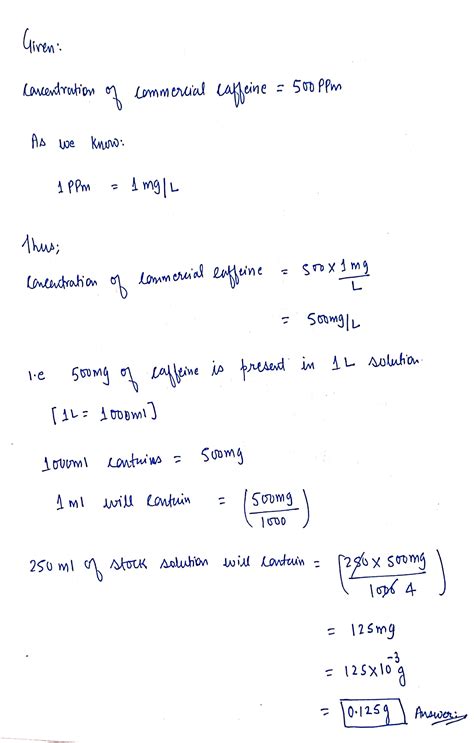 Given:
Concentration of commercial caffeine = 500 PPm
As we know:
1 PPm = 1 mg/L
Thus;
Concentration of commercial caffeine = 500 x 1 mg/L
= 500mg/L
i.e 500mg of caffeine is present in 1 L solution
[1L = 1000ml]
1000ml contains = 500mg
1 ml will contain = (500mg/1000)
250 ml of stock solution will contain = (250 x 500mg/1000 4)
= 125mg
= 125x10⁻³g
= 0.125g Answer: